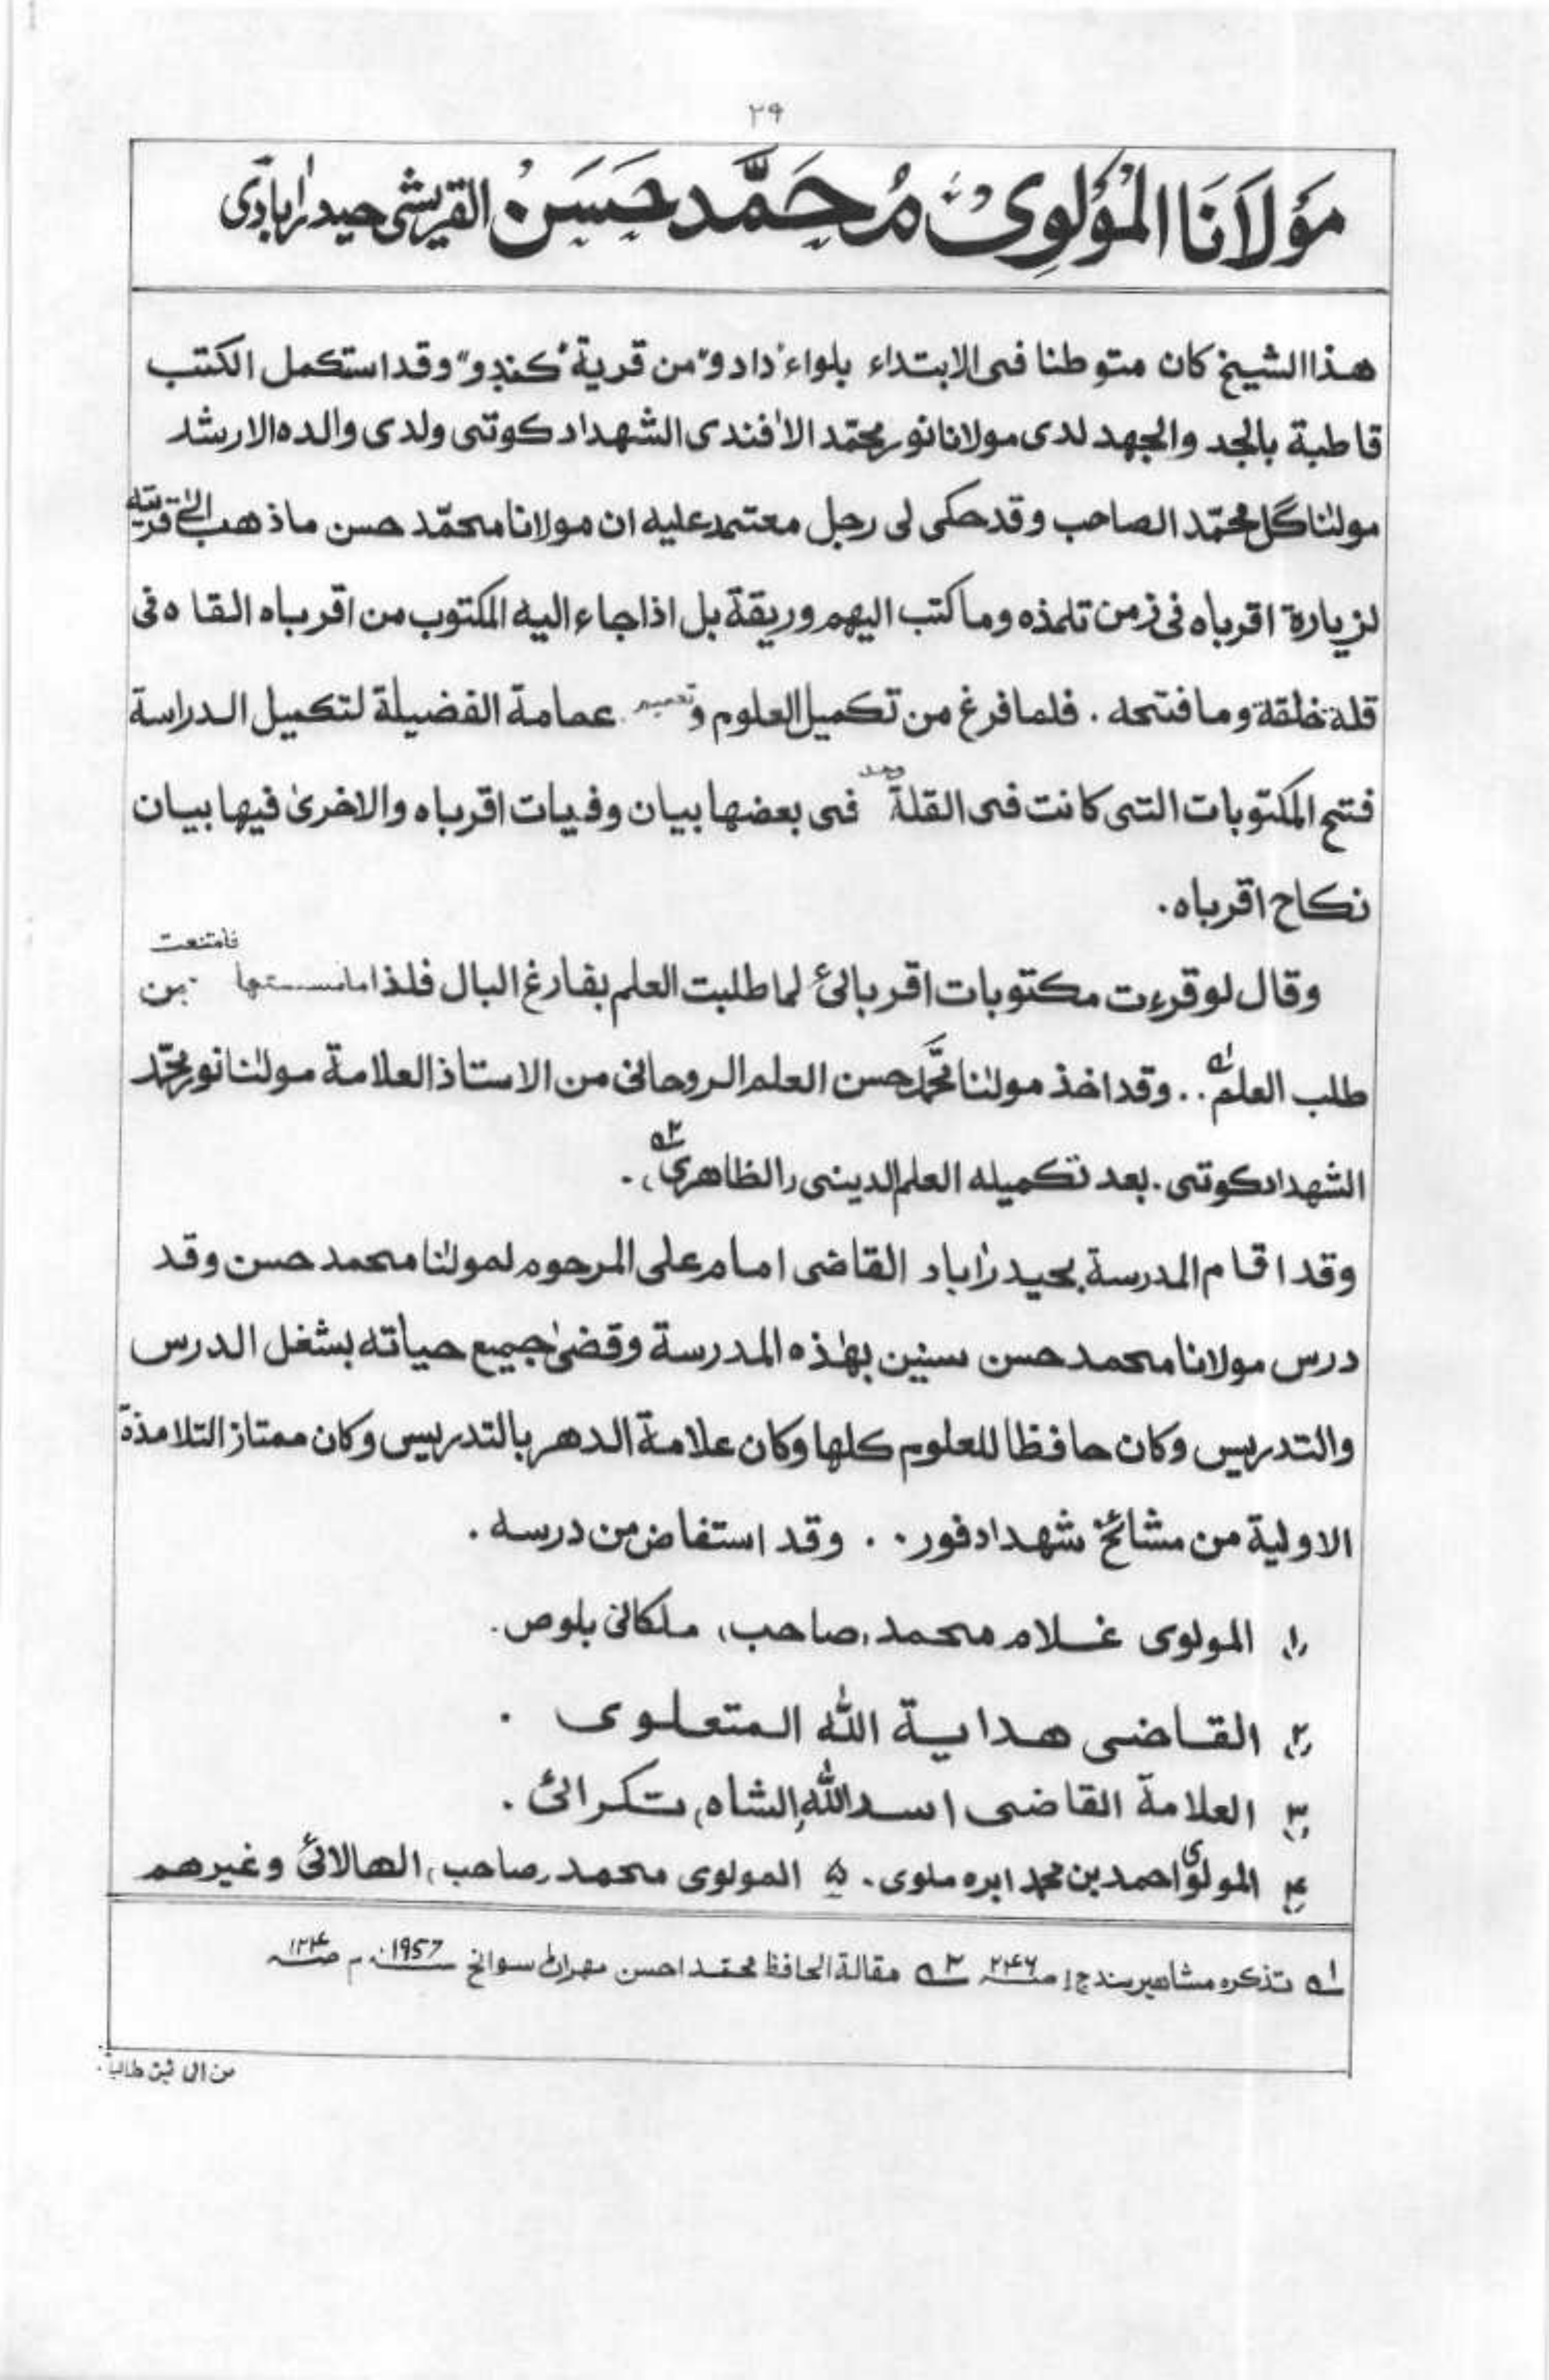 ٢٩
مَوْلَانَا الْمَوْلَوِیْ مُحَمَّد حَسَنْ القریشی حیدرآبادی
هذا الشيخ كان متوطنا فى الابتداء بلواء "دادو" من قرية "كندو" وقد استكمل الكتب
قاطبة بالجد والجهد لدى مولانا نور محمّد الافندى الشهدادكوتى ولدى والده الارشد
مولٰنا گل محمّد الصاحب وقد حكى لى رجل معتمد عليه ان مولانا محمّد حسن ما ذهب الىٰ قريته
لزيارة اقرباه فى زمن تلمذه وما كتب اليهم وريقة بل اذا جاء اليه المكتوب من اقرباه القاه فى
قلة خلقة وما فتحه . فلما فرغ من تكميل العلوم و تعميم عمامة الفضيلة لتكميل الدراسة
فتح المكتوبات التى كانت فى القلة وجد فى بعضها بيان وفيات اقرباه والاخرىٰ فيها بيان
نكاح اقرباه .
وقال لو قرءت مكتوبات اقربائى لما طلبت العلم بفارغ البال فلذا فامتنعت من
طلب العلم ١ .. وقد اخذ مولٰنا محمّد حسن العلم الروحانى من الاستاذ العلامة مولٰنا نور محمّد
الشهدادكوتى . بعد تكميله العلم الدينى (الظاهرى) ٢ .
وقد اقام المدرسة بحيدرٰاباد القاضى امام على المرحوم لمولٰنا محمد حسن وقد
درس مولانا محمد حسن سنين بهٰذه المدرسة وقضىٰ جميع حياته بشغل الدرس
والتدريس وكان حافظا للعلوم كلها وكان علامة الدهر بالتدريس وكان ممتاز التلامذة
الاولية من مشائخ شهدادفور . . وقد استفاض من درسه .
(١) المولوى غلام محمد (صاحب) ملكانى بلوص .
(٢) القاضى هداية الله المتعلوى .
(٣) العلامة القاضى اسد الله (الشاه) تكرائى .
(۴) المولوى احمد بن محمد ابره ملوى . (۵) المولوى محمد (صاحب) الهالائى وغيرهم
١ تذكره مشاهير سند ج ١ صـ ٢٤٦ ٢ مقالة الحافظ محمد احسن مهران سوانح سنـ 1957 م صـ ١٢٤
من ال